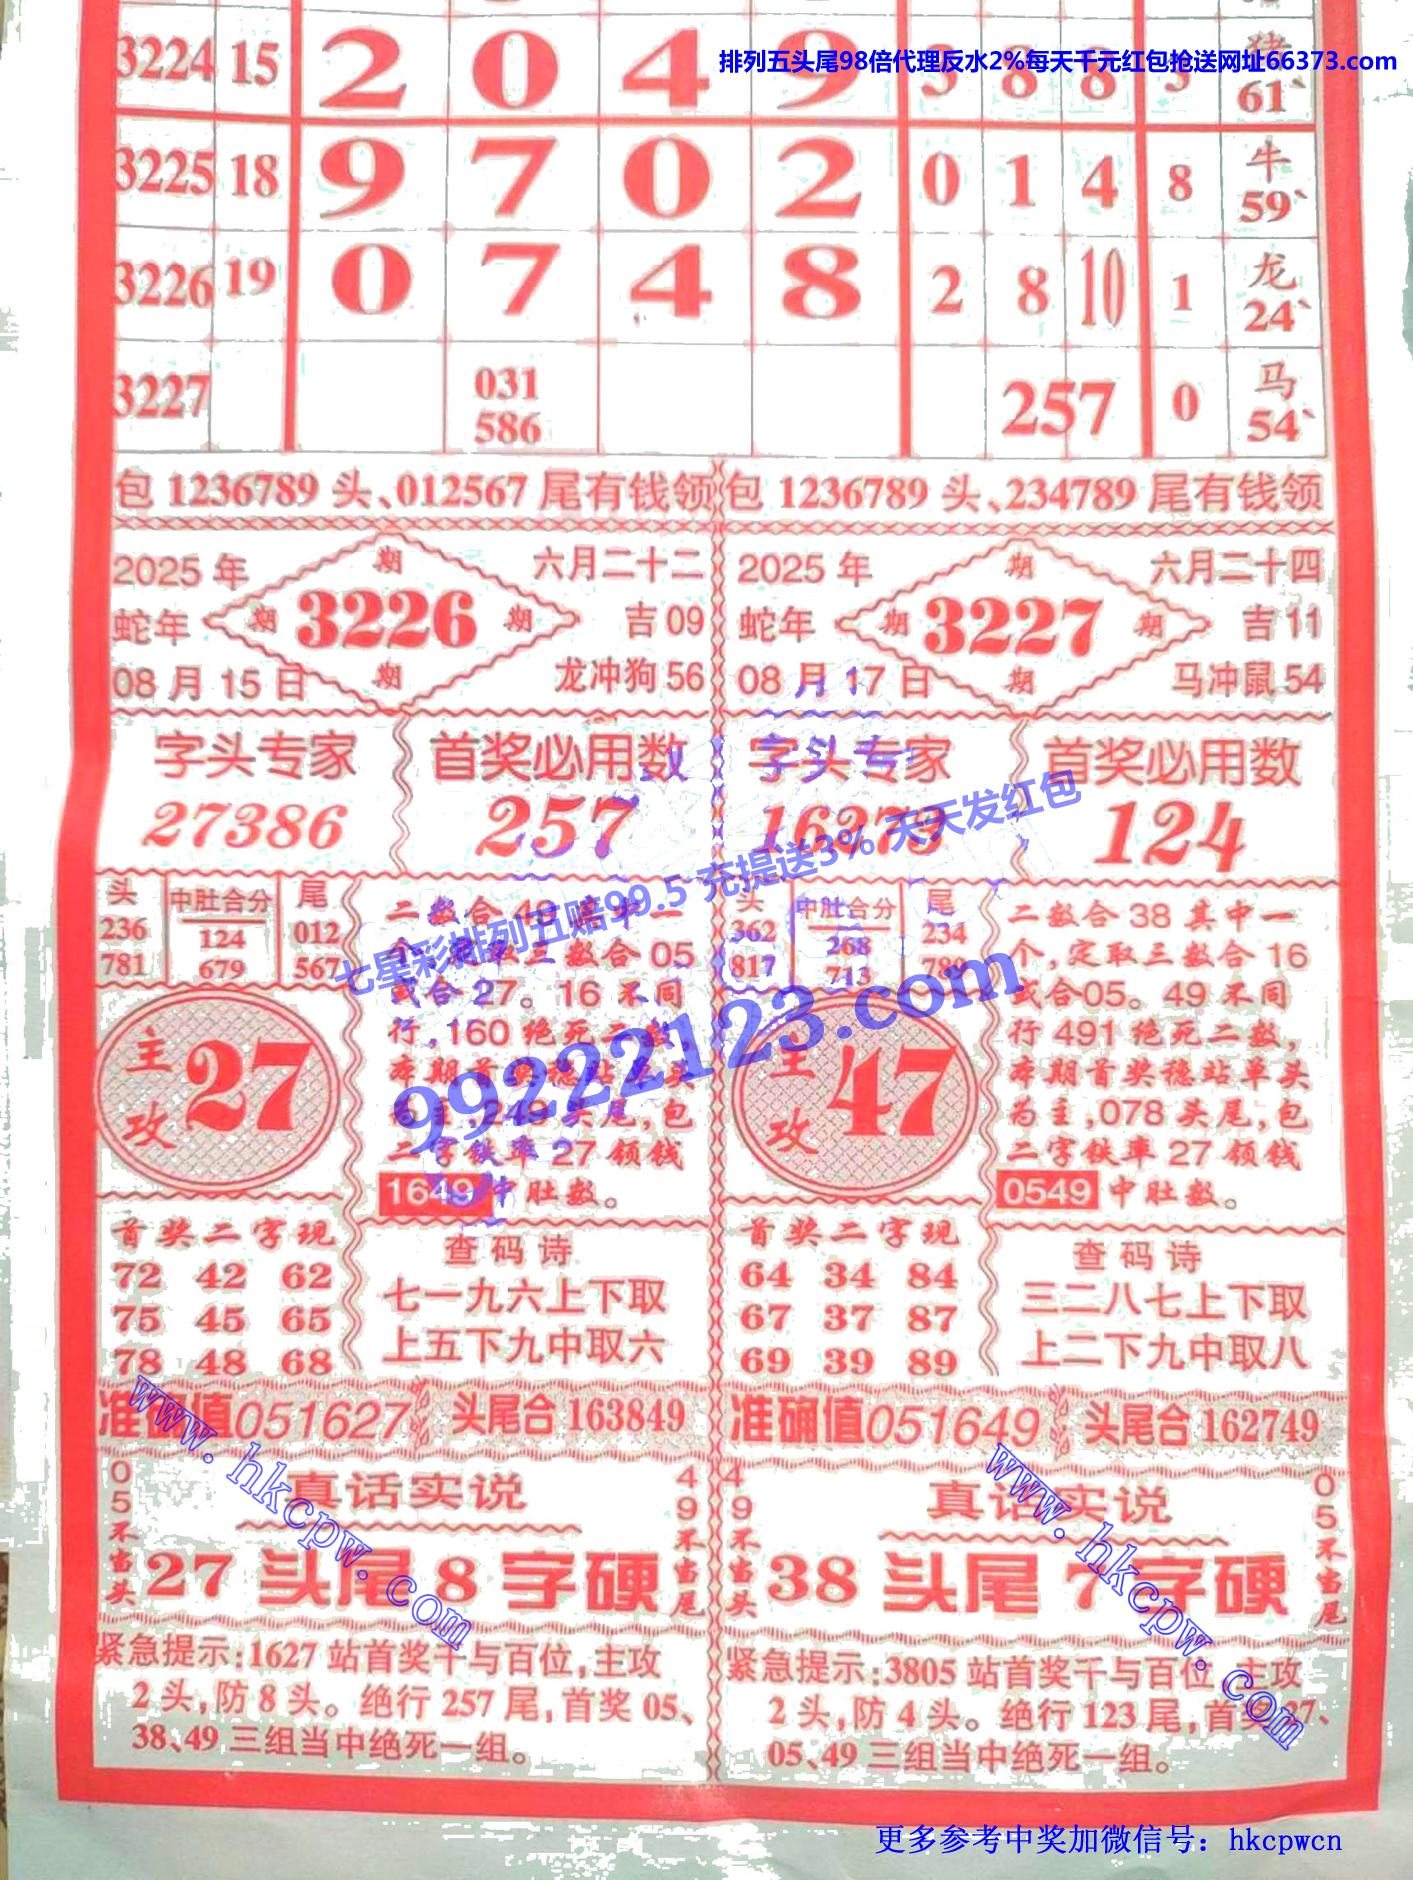 排列五头尾98倍代理反水2%每天千元红包抢送网址66373.com
3224 15 2 0 4 9 3 8 8 3 猪
61`
3225 18 9 7 0 2 0 1 4 8 牛
59`
3226 19 0 7 4 8 2 8 10 1 龙
24`
3227 031 257 0 马
586 54`
包 1236789 头、012567 尾有钱领
2025 年 期 六月二十二
蛇年 期 3226 期 吉 09
08 月 15 日 期 龙冲狗 56
字头专家 首奖必用数
27386 257
头 中肚合分 尾
236 124 012
781 679 567
主攻 27
二数合 49 其中一
个,定取三数合 05
或合 27。16 不同
行,160 绝死二数,
本期首奖稳站单头
为主,249 头尾,包
二字铁率 27 领钱
1649 中肚数。
首奖二字现
72 42 62
75 45 65
78 48 68
查码诗
七一九六上下取
上五下九中取六
准确值051627 头尾合 163849
05不当头
真话实说
27 头尾 8 字硬
49不当尾
紧急提示:1627 站首奖千与百位,主攻
2 头,防 8 头。绝行 257 尾,首奖 05、
38、49 三组当中绝死一组。
包 1236789 头、234789 尾有钱领
2025 年 期 六月二十四
蛇年 期 3227 期 吉 11
08 月 17 日 期 马冲鼠 54
字头专家 首奖必用数
16279 124
头 中肚合分 尾
362 268 234
817 713 789
主攻 47
二数合 38 其中一
个,定取三数合 16
或合05。49 不同
行 491 绝死二数,
本期首奖稳站单头
为主,078 头尾,包
二字铁率 27 领钱
0549 中肚数。
首奖二字现
64 34 84
67 37 87
69 39 89
查码诗
三二八七上下取
上二下九中取八
准确值051649 头尾合 162749
49不当头
真话实说
38 头尾 7 字硬
05不当尾
紧急提示:3805 站首奖千与百位,主攻
2 头,防 4 头。绝行 123 尾,首奖 27、
05、49 三组当中绝死一组。
七星彩排列五赔99.5 充提送3% 天天发红包
99222123.com
www.hkcpw.com
www.hkcpw.com
更多参考中奖加微信号：hkcpwcn